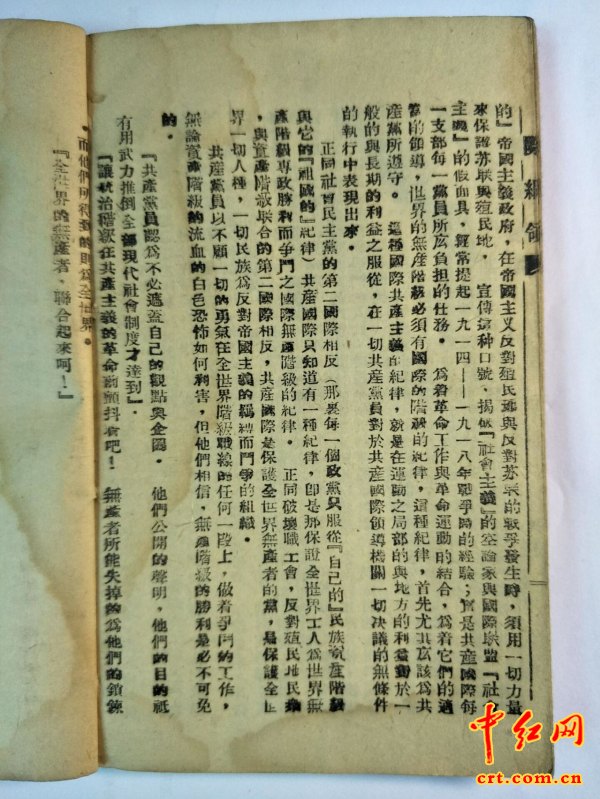 際綱領
的』帝國主義政府，在帝國主义反對殖民地與反對苏联的戰爭發生時，須用一切力量
來保證苏联與殖民地。宣傳這种口號，揭破『社會主義』的空論家與國際联盟『社会
主義』的假面具，經常提起一九一四——一九一八年戰爭時的經驗；實是共產國際每
一支部每一黨員所应負担的任務。爲着革命工作與革命運動的結合，爲着它們的適
當的領導，世界的無產階級必須有國際的階級的紀律，這種紀律，首先尤其应該爲共
產黨所遵守。這種國際共產主義的紀律，就是在運動之局部的與地方的利益對於一
般的與長期的利益之服從，在一切共產黨員對於共產國際領導機關一切决議的無條件
的執行中表現出來。
正同社會民主黨的第二國際相反（那裏每一個政黨只服從『自己的』民族資產階級
與它的『祖國的』紀律）共產國際只知道有一種紀律，卽是那保證全世界工人爲世界無
產階級專政勝利而爭鬥之國際無產階級的紀律。正同破壞職工會，反對殖民地民衆
，與資產階級联合的第二國際相反，共產國際是保護全世界無產者的黨，是保護全世
界一切人種，一切民族爲反對帝國主義的羈縛而鬥爭的組織。
共產黨員以不顧一切的勇氣在全世界階級戰線的任何一段上，做着爭鬥的工作，
無論資產階級的流血的白色恐怖如何利害，但他們相信，無產階級的勝利是必不可免
的。
『共產黨員認爲不必遮盖自己的觀點與企圖。他們公開的聲明，他們的目的祗
有用武力推倒全部現代社會制度才達到』．
『讓統治階級在共產主義的革命前顫抖着吧！無產者所能失掉的爲他們的鎖鍊
，而他們所得到的則爲全世界。
『全世界的無產者，聯合起來呵！』
中红网
crt.com.cn